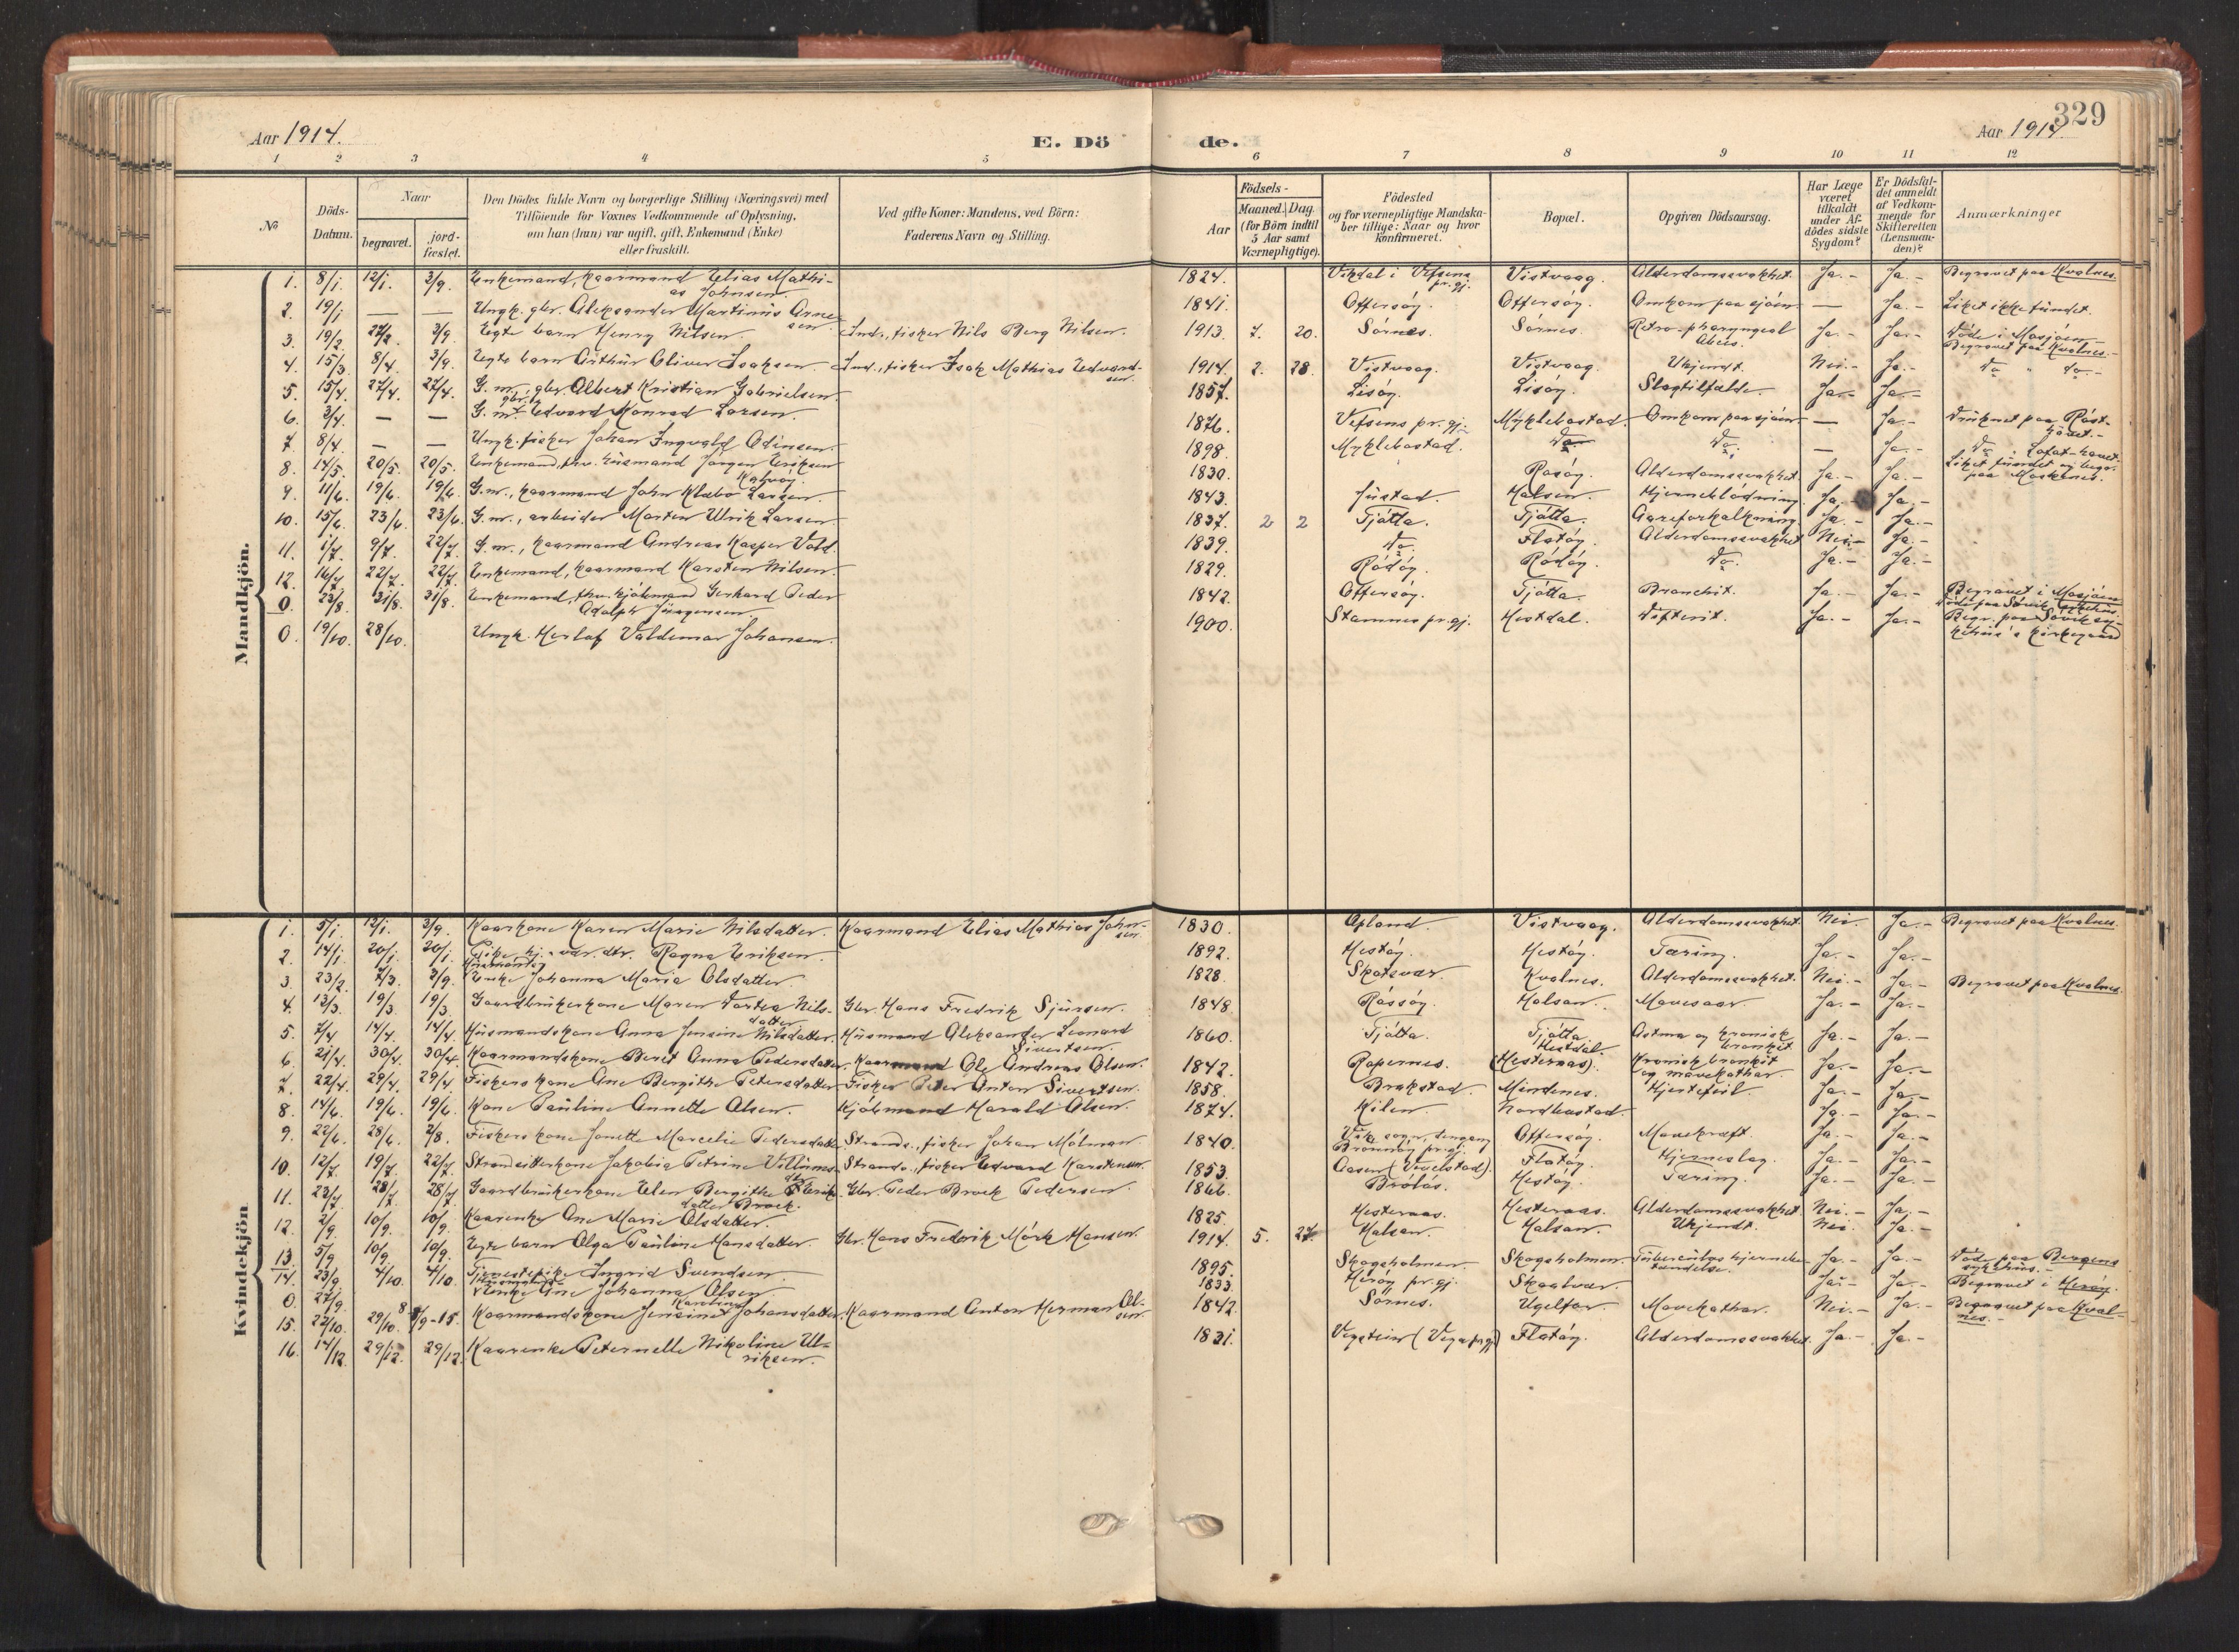 329
Aar 1914. E. Dö de. Aar 1914
1 2 3 4 5 6 7 8 9 10 11 12
No
Döds-Datum.
Naar
begravet.
jord-fæstet.
Den Dödes fulde Navn og borgerlige Stilling (Næringsvei) med
Tilföiende for Voxnes Vedkommende af Oplysning,
om han (hun) var ugift, gift, Enkemand (Enke)
eller fraskilt.
Ved gifte Koner: Mandens, ved Börn:
Faderens Navn og Stilling.
Födsels-
Aar
Maaned. Dag.
(for Börn indtil
5 Aar samt
Værnepligtige).
Födested
og for værnepligtige Mandska-
ber tillige: Naar og hvor
konfirmeret.
Bopæl.
Opgiven Dödsaarsag.
Har Læge
været
tilkaldt
under Af-
dödes sidste
Sygdom?
Er Dödsfal-
det anmeldt
af Vedkom-
mende for
Skifteretten
(Lensman-
den)?
Anmærkninger
Mandkjön.
1. 8/1. 12/1. 3/9. Enkemand, kaarmand Elias Mathi-as Johnsen. 1824. Vikdal i Vefsens pr.gj. Vistvaag. Alderdomssvakhet. Ja.- Ja.- Begravet paa Kvalnes.
2. 19/1 — — Ungk. gbr. Aleksander Martinus Arnesen 1841. Offersöy. Offersöy. Omkom paa sjöen. — Ja.- Liket ikke fundet.
3. 19/2. 27/2. 3/9. Egte barn Henry Nilsen. Ind., fisker Nils Berg Nilsen. 1913. 7. 20. Sörnes. Sörnes. Retro-pharyngeal Abces. Ja.- Ja.- Döde i Mosjöen.- Begravet paa Kvalnes.-
4. 15/3. 8/4. 3/9. Egte barn Arthur Oliver Isaksen. Ind., fisker Isak Mathias Edvardsen. 1914. 2. 28. Vistvaag. Vistvaag. Ukjendt. Nei.- Ja.- Do " do.-
5. 15/4. 27/4. 27/4. G.m., gbr. Albert Kristian Gabrielsen. 1857. Lisöy. Lisöy. Slagtilfælde. Ja.- Ja.-
6. 3/4. — — G.m. gbr. Edvard Konrad Larsen. 1876. Vefsens pr.gj. Myklebostad. Omkom paa sjöen. — Ja.- Druknet paa Röst-havet.-
7. 8/4. — — Ungk. fisker Johan Ingvald Odinsen. 1898. Myklebostad. Do Do. — Ja.- Do " Lofot-havet. Liket fundet og begr. paa Moskenes.
8. 14/5. 20/5. 20/5. Enkemand, fhv. husmand Jörgen Eriksen 1830. Kalvöy. Rosöy. Alderdomssvakhet. Ja.- Ja.-
9. 11/6. 19/6. 19/6. G.m., kaarmand John Klæbo Larsen. 1843. Fustad. Halsen. Hjerneblödning. Ja.- Ja.-
10. 15/6. 23/6. 23/6. G.m., arbeider Morten Ulrik Larsen 1837. 2 2 Tjötta. Tjötta. Aareforkalkning. Ja.- Ja.-
11. 1/7. 9/7. 22/7. G.m., kaarmand Andreas Kasper Vold. 1839. Do. Flatöy. Alderdomssvakhet Nei.- Ja.-
12. 16/7. 22/7. 22/7. Enkemand, kaarmand Karsten Nilsen. 1829. Rödöy. Rödöy. Do. Ja.- Ja.-
0. 23/8. 31/8. 31/8. Enkemand, fhv. kjöbmand Gerhard Peder Adolph Jürgensen. 1842. Offersöy. Tjötta. Bronchit. Ja.- Ja.- Begravet i Mosjöen
0. 19/10. 28/10. Ungk. Herlof Valdemar Johansen. 1900. Stamnes pr.gj. Hestdal. Difterit. Ja.- Ja.- Döde paa Sövik sykehus. Begr. paa Sövik sykehus's kirkegaard
Kvindekjön
1. 5/1. 12/1. 3/9. Kaarkone Karen Marie Nilsdatter. Kaarmand Elias Mathias Johnsen. 1830. Opland. Vistvaag. Alderdomssvakhet. Nei Ja.- Begravet paa Kvalnes.
2. 14/1. 20/1. 20/1. Pike, datter Ragna Eriksen 1892. Hestöy. Hestöy. Tæring. Ja.- Ja.-
3. 23/2. 7/3. 3/9. Husmandsenke Johanna Maria Olsdatter. 1828. Skotsvær Kvalnes. Alderdomssvakhet. Nei.- Ja.- Begravet paa Kvalnes.
4. 13/3. 19/3. 19/3. Gaardbrukerkone Maren Dortea Nilsdatter Gbr. Hans Fredrik Sjursen. 1848. Rössöy. Halsan. Mavesaar. Ja.- Ja.-
5. 7/4 14/4. 14/4. Husmandskone Anna Jensine Nilsdatter. Husmand Aleksander Leonard Sivertsen. 1860. Tjötta. Tjötta Hestdal. Astma og kronisk bronkit. Ja.- Ja.-
6. 21/4. 30/4. 30/4. Kaarmandskone Beret Anna Pedersdatter. Kaarmand Ole Andreas Olsen. 1842. Ropernes. (Hesteraas). Kronisk bronkit og mavekathar. Ja.- Ja.-
7. 22/4. 29/4. 29/4. Fiskerskone Ane Bergitte Petersdatter Fisker Peter Anton Sivertsen. 1858. Brakstad. Mindenes. Hjertefeil. Ja.- Ja.-
8. 14/6. 19/6. 19/6. Kone Pauline Annette Olsen. Kjöbmand Harald Olsen. 1874. Kilen. Nordbostad. Ja.- Ja.-
9. 22/6. 28/6. 2/8. Fiskerskone Jonette Marcelie Pedersdatter Strands., fisker Johan Mölman 1840. Vik sogn, Brönnöy pr.gj. Offersöy. Mavekræft. Ja.- Ja.-
10. 12/7. 19/7. 22/7. Strandsitterkone Jakobia Petrine Villumsdtr Strands., fisker Edvard Karstensen. 1853. Aasen (Vevelstad). Flatöy. Hjerneslag. Ja.- Ja.-
11. 23/7. 28/7. 28/7. Gaardbrukerkone Elen Bergithe Eriksdatter Brock. Gbr. Peder Brock Pedersen. 1866. Bröløs. Hestöy. Tæring. Ja.- Ja.-
12. 2/9. 10/9. 10/9. Kaarenke Ane Marie Olsdatter. 1825. Hesteraas. Hesteraas. Alderdomssvakhet Nei.- Ja.-
13. 5/9 10/9. 10/9. Egte barn Olga Pauline Hansdatter. Gbr. Hans Fredrik Mörk Hansen. 1914. 5. 27 Halsan. Halsan. Ukjendt. Nei. Ja.-
14. 23/9 4/10. 4/10. Tjenestepike Ingrid Svendsen. 1895. Skogsholmen. Skogsholmen. Tuberculos hjernebetændelse. Ja.- Ja.- Död paa Bergens sykehus.-
0. 27/9. Husmandsenke Ane Johanna Olsen. 1833. Heröy pr.gj. Skaalvær. Ja.- Ja.- Begravet i Heröy.
15. 22/10. 29/10. 8/9-15. Kaarmandskone Jensine Karoline Johansdatter. Kaarmand Anton Herman Olsen. 1842. Sörnes. Ugelfar. Mavekathar. Nei.- Ja.- Begravet paa Kvalnes.-
16. 14/12 29/12. 29/12. Kaarenke Peternelle Nikoline Ulriksen. 1831. Vegstein (Vega pr.gj) Flatöy. Alderdomssvakhet. Ja.- Ja.-